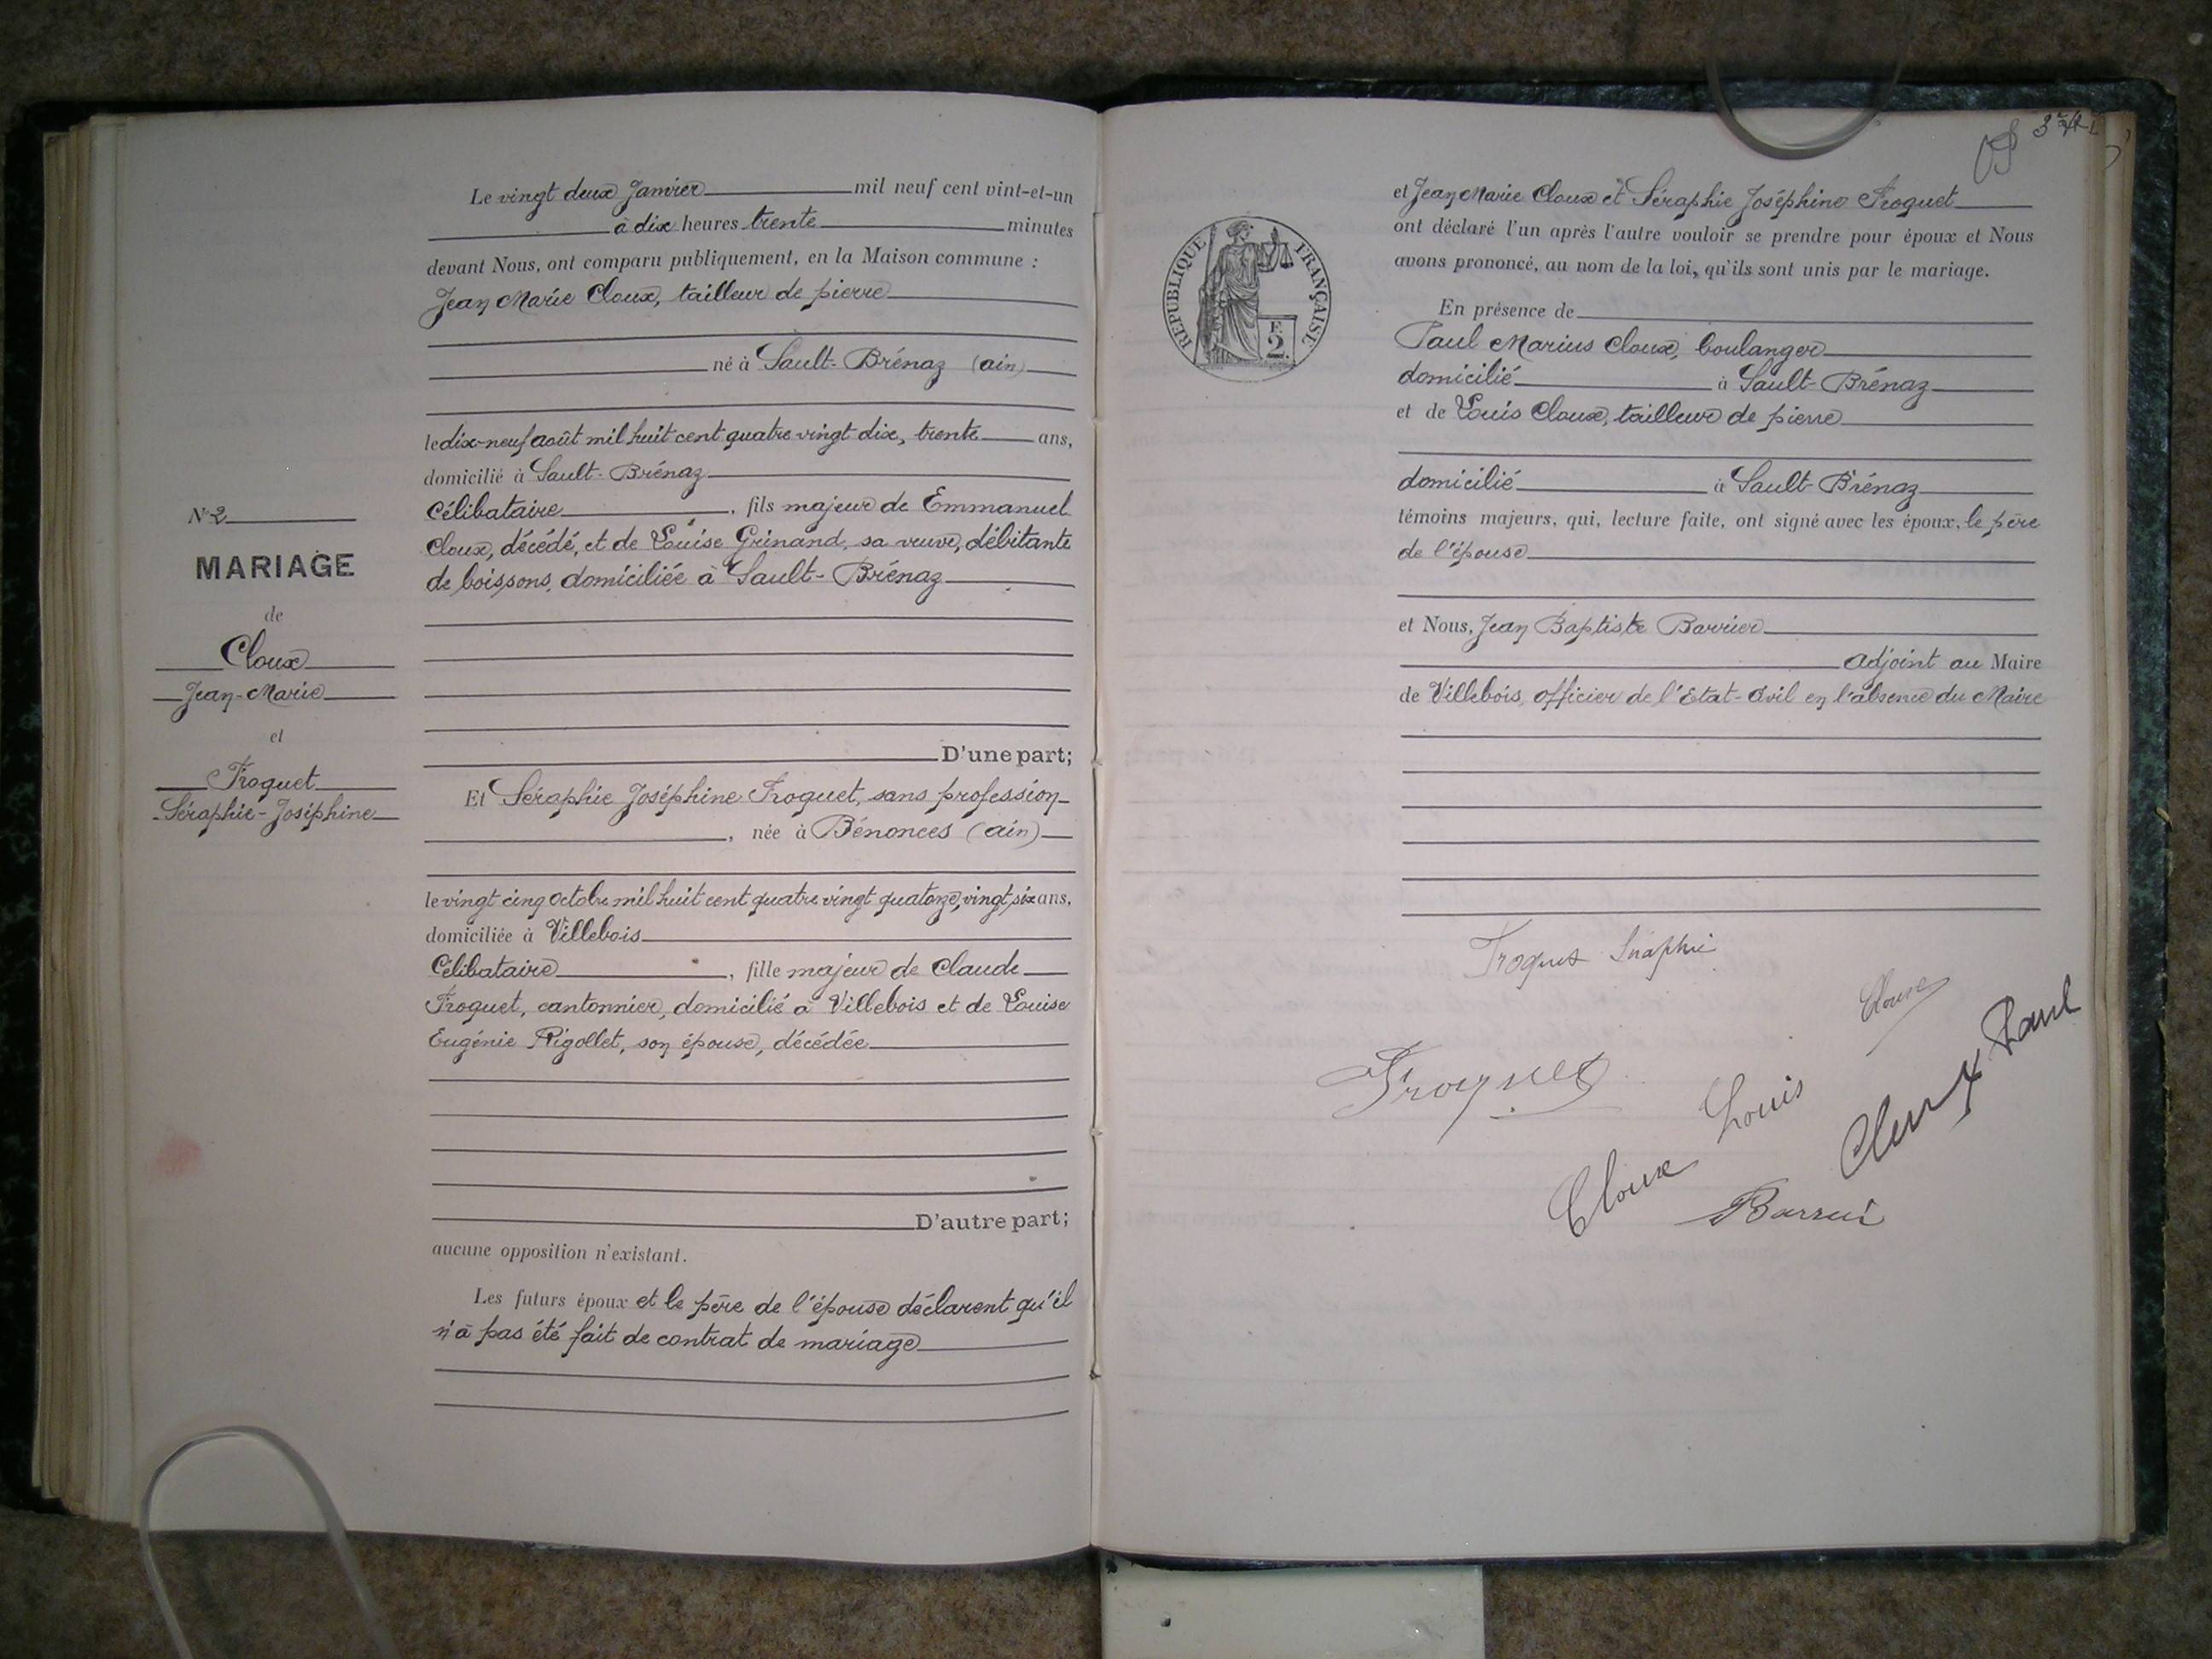 Le vingt deux Janvier mil neuf cent vint-et-un
à dix heures trente minutes
devant Nous, ont comparu publiquement, en la Maison commune :
Jean Marie Cloux, tailleur de pierre
né à Sault-Brénaz (ain)
le dix-neuf août mil huit cent quatre vingt dix, trente ans,
domicilié à Sault-Brénaz
Célibataire, fils majeur de Emmanuel
Cloux, décédé, et de Louise Grinand, sa veuve, débitante
de boissons, domiciliée à Sault-Brénaz
D'une part;
Et Séraphie Joséphine Froquet, sans profession
, née à Bénonces (ain)
le vingt cinq Octobre mil huit cent quatre vingt quatorze, vingt six ans,
domiciliée à Villebois
Célibataire, fille majeur de Claude
Froquet, cantonnier, domicilié à Villebois et de Louise
Eugénie Rigollet, son épouse, décédée
D'autre part;
aucune opposition n'existant.
Les futurs époux et le père de l'épouse déclarent qu'il
n'a pas été fait de contrat de mariage
N° 2
MARIAGE
de
Cloux
Jean-Marie
et
Froquet
Séraphie-Joséphine
et Jean Marie Cloux et Séraphie Joséphine Froquet
ont déclaré l'un après l'autre vouloir se prendre pour époux et Nous
avons prononcé, au nom de la loi, qu'ils sont unis par le mariage.
En présence de
Paul Marius Cloux, boulanger
domicilié à Sault-Brénaz
et de Louis Cloux, tailleur de pierre
domicilié à Sault-Brénaz
témoins majeurs, qui, lecture faite, ont signé avec les époux, le père
de l'épouse
et Nous, Jean Baptiste Barrier
adjoint au Maire
de Villebois, officier de l'Etat-Civil en l'absence du Maire
RÉPUBLIQUE FRANÇAISE
F.
2
Froquet Séraphie
Cloux
Froquet
Cloux Louis
Cloux Paul
Barrier